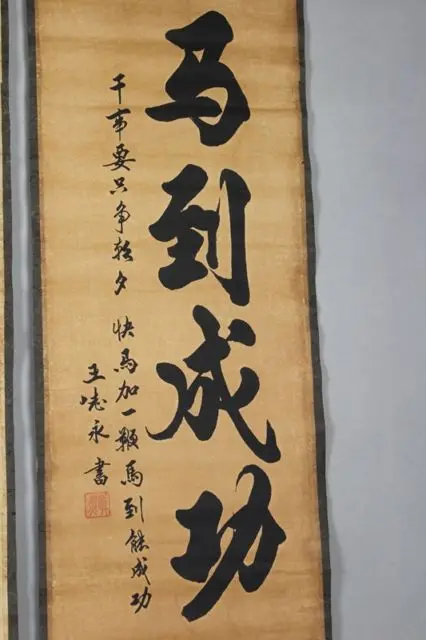 马到成功
干事要只争朝夕 快马加一鞭馬到能成功
王志永書